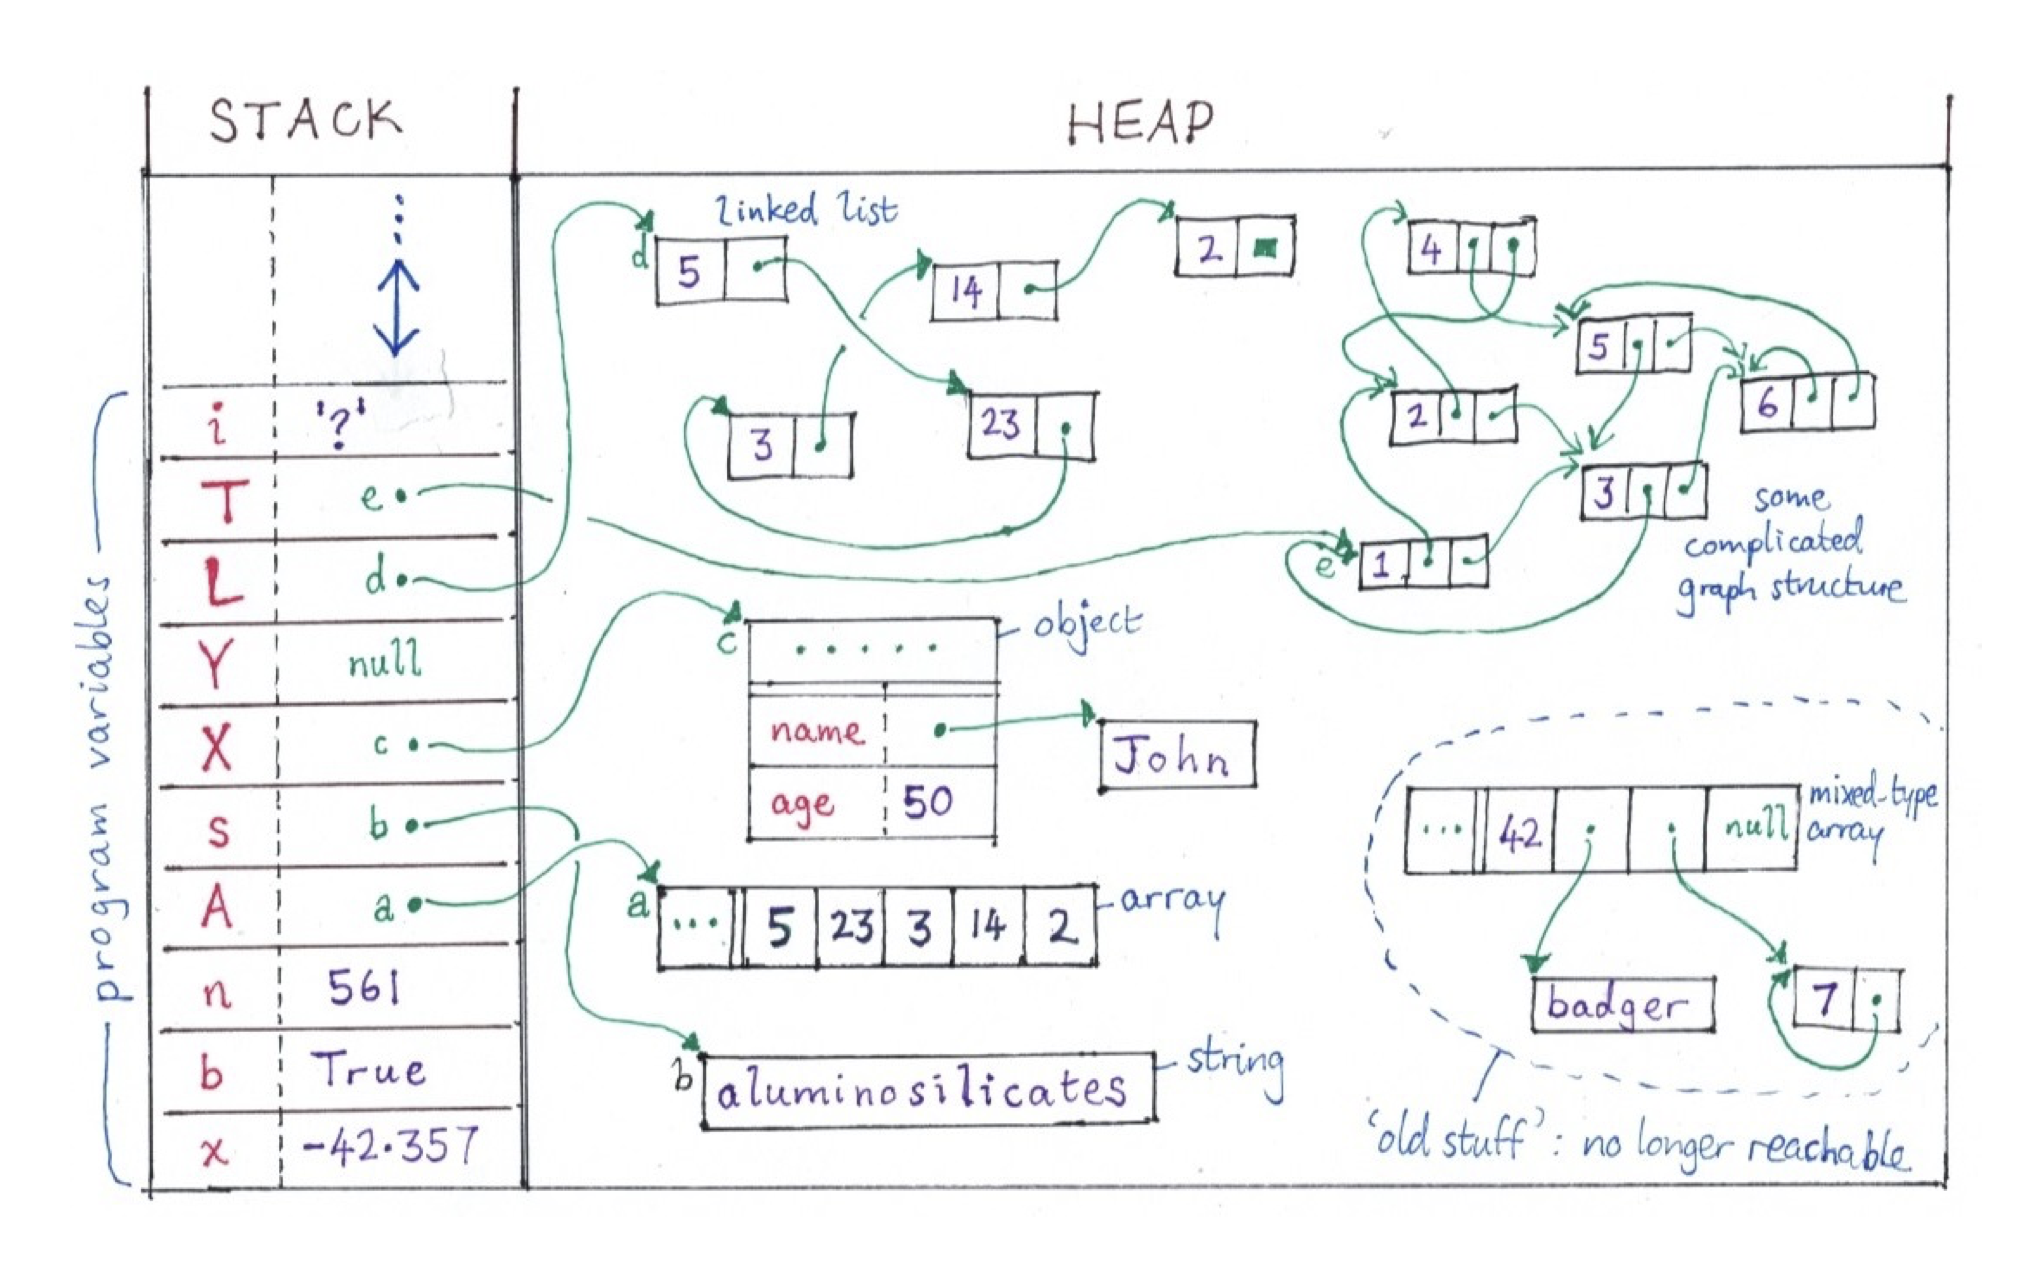 STACK
HEAP
program variables
i '?'
T e
L d
Y null
X c
s b
A a
n 561
b True
x -42.357
linked list
d 5
14
2
3
23
4
5
6
2
3
e 1
some
complicated
graph structure
c
object
name
John
age 50
a ... 5 23 3 14 2
array
b aluminosilicates
string
... 42 null
mixed-type
array
badger
7
'old stuff': no longer reachable